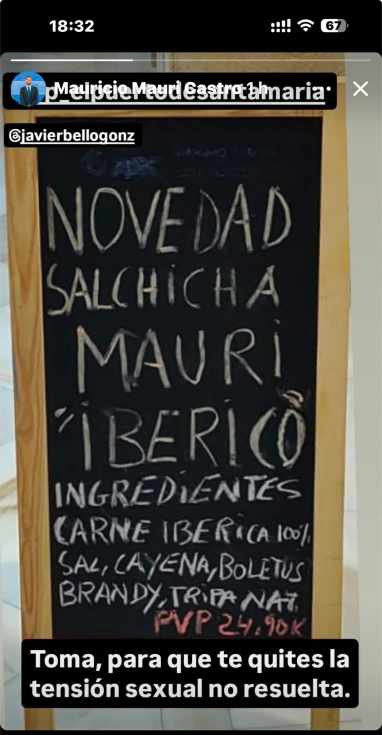 18:32
67
Mauricio Mauri Castro 1 h
p_elpuertodesantamaria
@javierbellogonz
NOVEDAD
SALCHICHA
MAURI
"IBERICO"
INGREDIENTES
CARNE IBERICA 100%
SAL, CAYENA, BOLETUS
BRANDY, TRIPA NAT.
PVP 24.90K
Toma, para que te quites la
tensión sexual no resuelta.